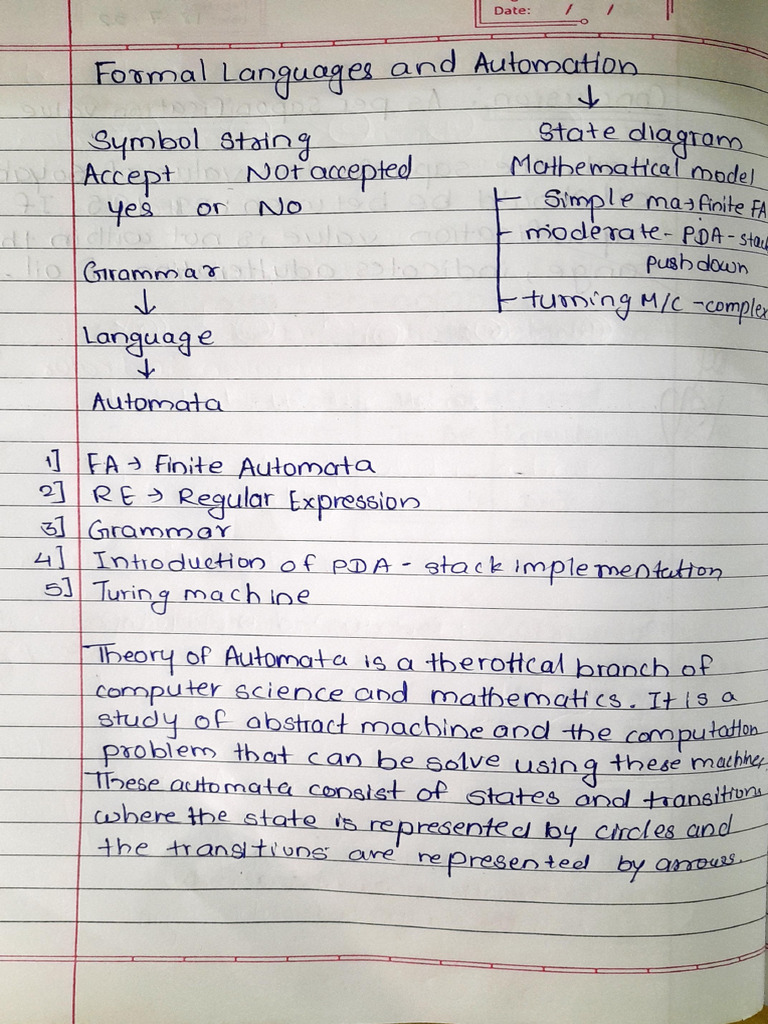 Date: / /
Formal Languages and Automation
↓
Symbol String
State diagram
Accept Not accepted
Mathematical model
Yes or No
Simple m → finite FA
moderate - PDA - stack
pushdown
turning M/C - complex
Grammar
↓
Language
↓
Automata
1] FA → Finite Automata
2] RE → Regular Expression
3] Grammar
4] Introduction of PDA - stack implementation
5] Turing machine
Theory of Automata is a therotical branch of
computer science and mathematics. It is a
study of abstract machine and the computation
problem that can be solve using these machines
These automata consist of states and transitions
where the state is represented by circles and
the transitions are represented by arrows.